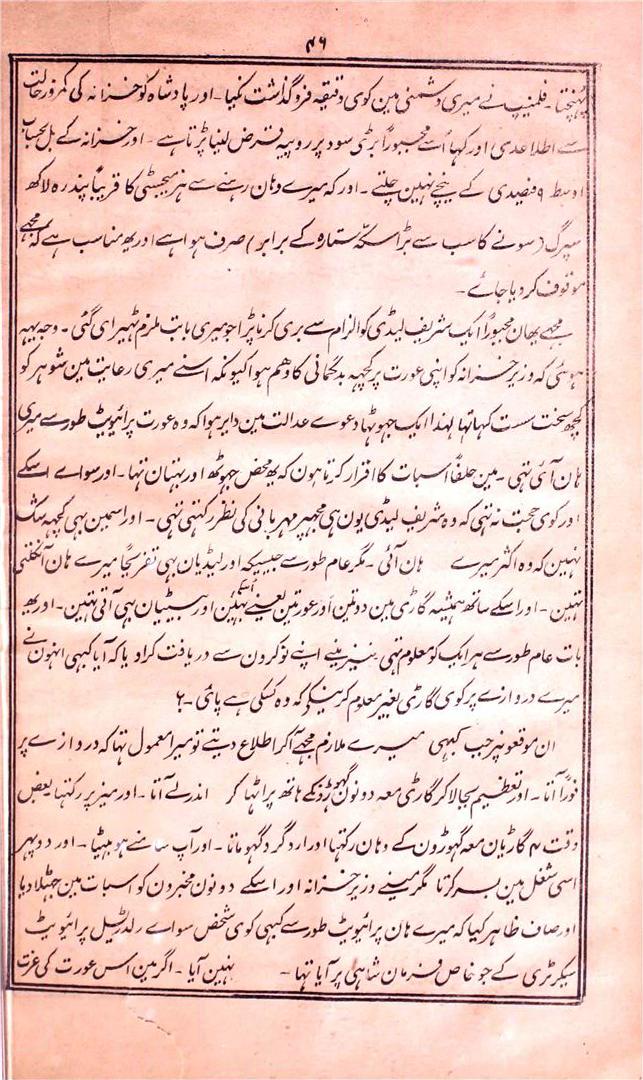 ۴۶
پہنچتا۔ فلمنیپ نے میری دشمنی مین کوی دقیقہ فروگذاشت نکیا۔ اور پادشاہ کو خزانہ کی کمزور حالت
سے اطلاعدی اور کہا اُسے مجبوراً بڑی سود پر روپیہ قرض لینا پڑتا ہے۔ اور خزانہ کے بل بحساب
اوسط ۹ فیصدی کے نیچے نہین چلتے۔ اور کہ میرے وہان رہنے سے ہنر میجسٹی کا قریباً پندرہ لاکھ
سپرگ (سونے کا سب سے بڑا سکّہ ستارہ کے برابر) صرف ہوا ہے اور یھ مناسب ہے کہ مجھے
موقوف کر دیا جائے۔
مجھے یھان مجبوراً ایک شریف لیڈی کو الزام سے بری کرنا پڑا جو میری بابت ملزم ٹھیرای گئی۔ وجہ یہہ
ہوئی کہ وزیر خزانہ کو اپنی عورت پر کچہہ بدگمانی کا دھم ہوا کیونکہ اسنے میری رعایت مین شوہر کو
کچھ سخت سست کہا تہا لہٰذا ایک جہوٹہا دعوے عدالت مین دایر ہوا کہ وہ عورت پرائیویٹ طور سے میری
ہان آئی تہی۔ مین حلفاً اسبات کا اقرار کرتا ہون کہ یھ محض جہوٹھ اور بہتان تہا۔ اور سواے اسکے
اور کوی حجت نہ تہی کہ وہ شریف لیڈی یون ہی مجہپر مہربانی کی نظر رکہتی تہی۔ اور اسمین بہی کچہہ شک
نہین کہ وہ اکثر میرے ہان آئی۔ مگر عام طور سے جیسیکہ اور لیڈیان بہی تفریحاً میرے ہان آنکلتی
تہین۔ اور اسکے ساتھ ہمیشہ گاڑی مین دو تین اور عورتین یعنے اُسکی بہنین اور بیٹیان بہی آتی تہین۔ اور یھ
بات عام طور سے ہر ایک کو معلوم تہی نیز مینے اپنے نوکرون سے دریافت کرا دیا کہ آیا کبہی انہون نے
میرے دروازے پر کوی گاڑی بغیر معلوم کرنیکے کہ وہ کسکی ہے پائی۔؟
ان موقعونپر جب کبہی میرے ملازم مجھے آکر اطلاع دیتے تو میرا معمول تہا کہ دروازے پر
فوراً آتا۔ اور تعظیم بجا لاکر گاڑی معہ دونون گہوڑونکے ہاتھ پر اٹہا کر اندر لے آتا۔ اور میز پر رکہتا بعض
وقت ۴ گاڑیان معہ گہوڑون کے وہان رکہتا اور ارد گرد گہوماتا۔ اور آپ سامنے ہو بیٹہتا۔ اور دوپہر
اسی شغل مین بسر کرتا مگر مینے وزیر خزانہ اور اسکے دونون مخبرون کو اسبات مین جہٹلا دیا
اور صاف ظاہر کیا کہ میرے ہان پرائیویٹ طور سے کبہی کوی شخص سواے رلڈرسیل پرائیویٹ
سیکرٹری کے جو خاص فرمان شاہی پر آیا تہا۔ نہین آیا۔ اگر مین اس عورت کی عزت